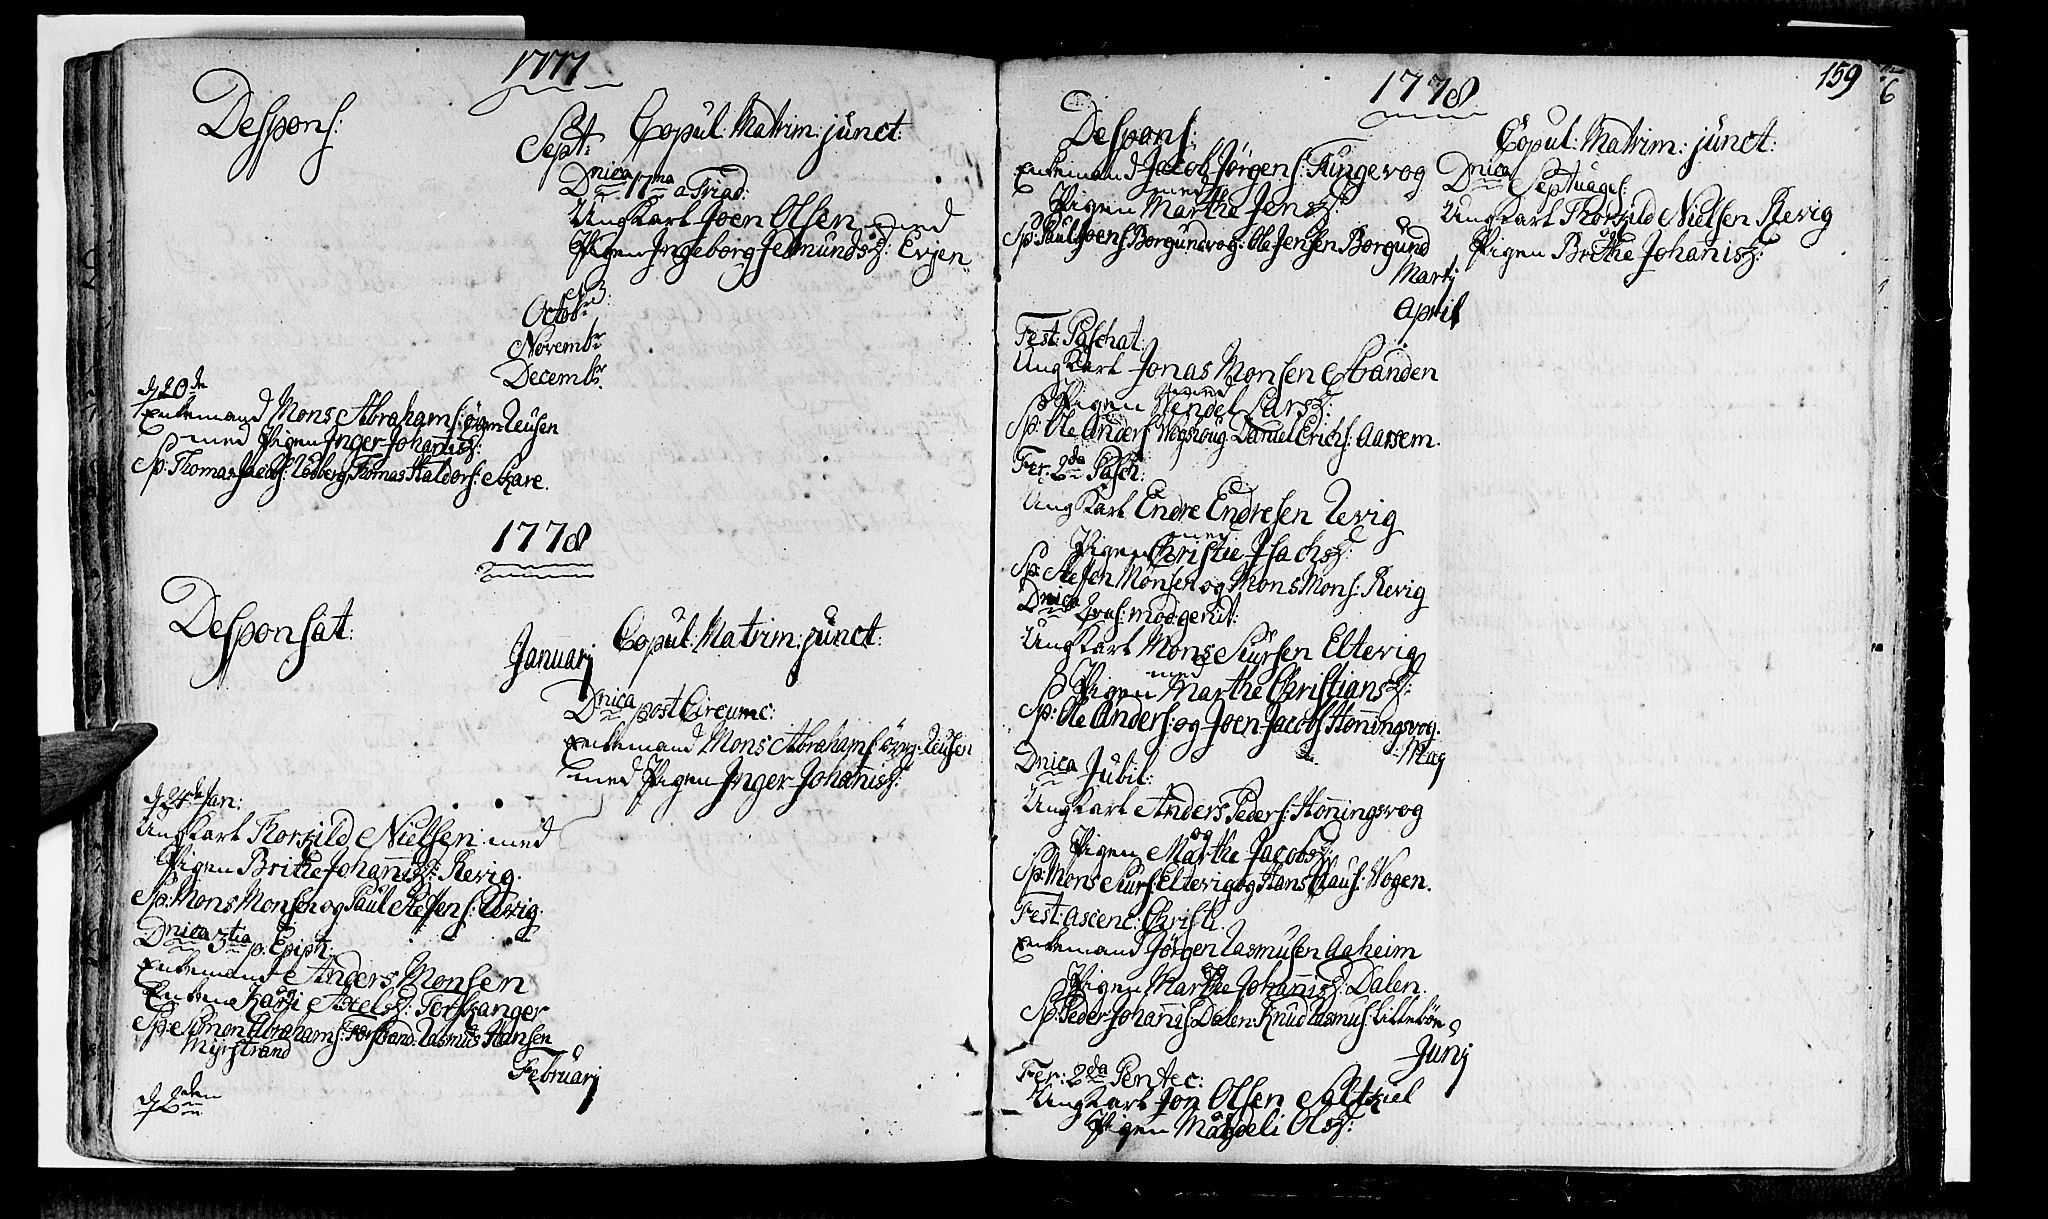 1777
Despons:
Sept:
Copul: Matrim: junct:
Dnica 17ma a Triad:
Ungkarl Joen Olsen med
Pigen Ingeborg Jetmundsd: Evjen
Octobr
Novembr
Decembr
d 20de
Enkemand Mons Abrahams:
med Pigen Inger Johanisd:
Sp: Thomas Jacobs: Thomas Haldors: Skare.
1778
Desponsat:
Januarj
Copul: Matrim: junct:
Dnica post Circumc:
Enkemand Mons Abrahams:
med Pigen Inger Johanisd:
d 24de Jan:
Ungkarl Thorkild Nielsen med
Pigen Brithe Johanisd: Revig.
Sp: Mons Monsen og Paul Stefens: Revig.
Dnica 3tia p. Epiph:
Enkemand Anders Monsen
Enken Kari Axelsd: Torhanger
Sp: Simon Abrahams: Rasmus Hansen
Myrstrand
Februarj
d 2den
159
1778
Despons:
Enkemand Jacob Jørgens: Kungevog
med
Pigen Marthe Jensd:
Sp: Paul Joens Borgundvog: Ole Jensen Borgund
Copul: Matrim: junct:
Dnica Septuages:
Ungkarl Thorkild Nielsen Revig
og
Pigen Brithe Johanisd:
Martj
April
Fest: Paschat:
Ungkarl Jonas Monsen Stranden
med
Pigen Rendel Larsd:
Sp: Ole Anders Vogshoug Daniel Erichs: Aarsem.
Fer: 2da Pasch:
Ungkarl Endre Endresen Revig
med
Pigen Christie Isachsd:
Sp: Stefen Monsen og Mons Mons: Revig
Dnica Qvas: modogenit:
Ungkarl Mons Siursen Eltevig
med
Pigen Marthe Christiansd:
Sp: Ole Anders: og Joen Jacobs Honingsvog.
Maj
Dnica Jubil:
Ungkarl Anders Peders: Honingsvog
og
Pigen Marthe Jacobsd:
Sp: Mons Siurs: Eltevig og Hans Claus: Vogen.
Fest: Ascenc: Christi.
Enkemand Jørgen Rasmusen Aaheim
og
Pigen Marthe Johanisd: Dalen.
Sp: Peder Johanis: Dalen. Knud Rasmus: Lillebøe
Junj
Fer: 2da Pentec:
Ungkarl Jon Olsen Saltkiel
Pigen Magdeli Olsd: